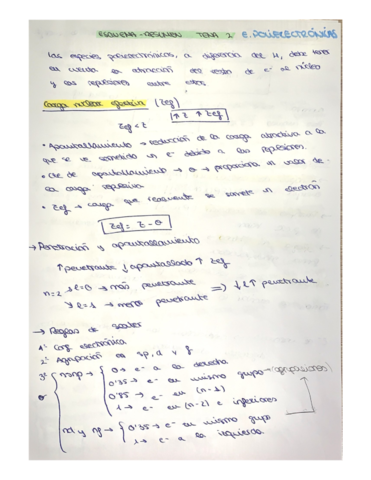 ESQUEMA-RESUMEN TEMA 2 E. POLIELECTRÓNICAS
Las especies polielectrónicas, a diferencia del H, debe tener
en cuenta la atracción del resto de e⁻ al núcleo
y las repulsiones entre ellos.
Carga nuclear efectiva (Zef)
↑Z ↑Zef
Zef < Z
• Apantallamiento → reducción de la carga atractiva a la
que se ve sometido un e⁻ debido a las repulsiones.
• Cte de apantallamiento → θ → proporciona un valor de
la carga repulsiva
• Zef → carga que realmente se somete un electrón
Zef = Z - θ
→ Penetración y apantallamiento
↑ penetrante ↓ apantallado ↑ Zef
n=2 → l=0 → más penetrante
↘ l=1 → menos penetrante ⇒ ↓l ↑ penetrante
→ Reglas de Slater
1º Conf. electrónica
2º Agrupación en sp, d y f
3º ns np → 0 → e⁻ a la derecha
0'35 → e⁻ en mismo grupo
0'85 → e⁻ en (n-1)
1 → e⁻ en (n-2) e inferiores
θ
nd y nf → 0'35 → e⁻ en mismo grupo
1 → e⁻ a la izquierda